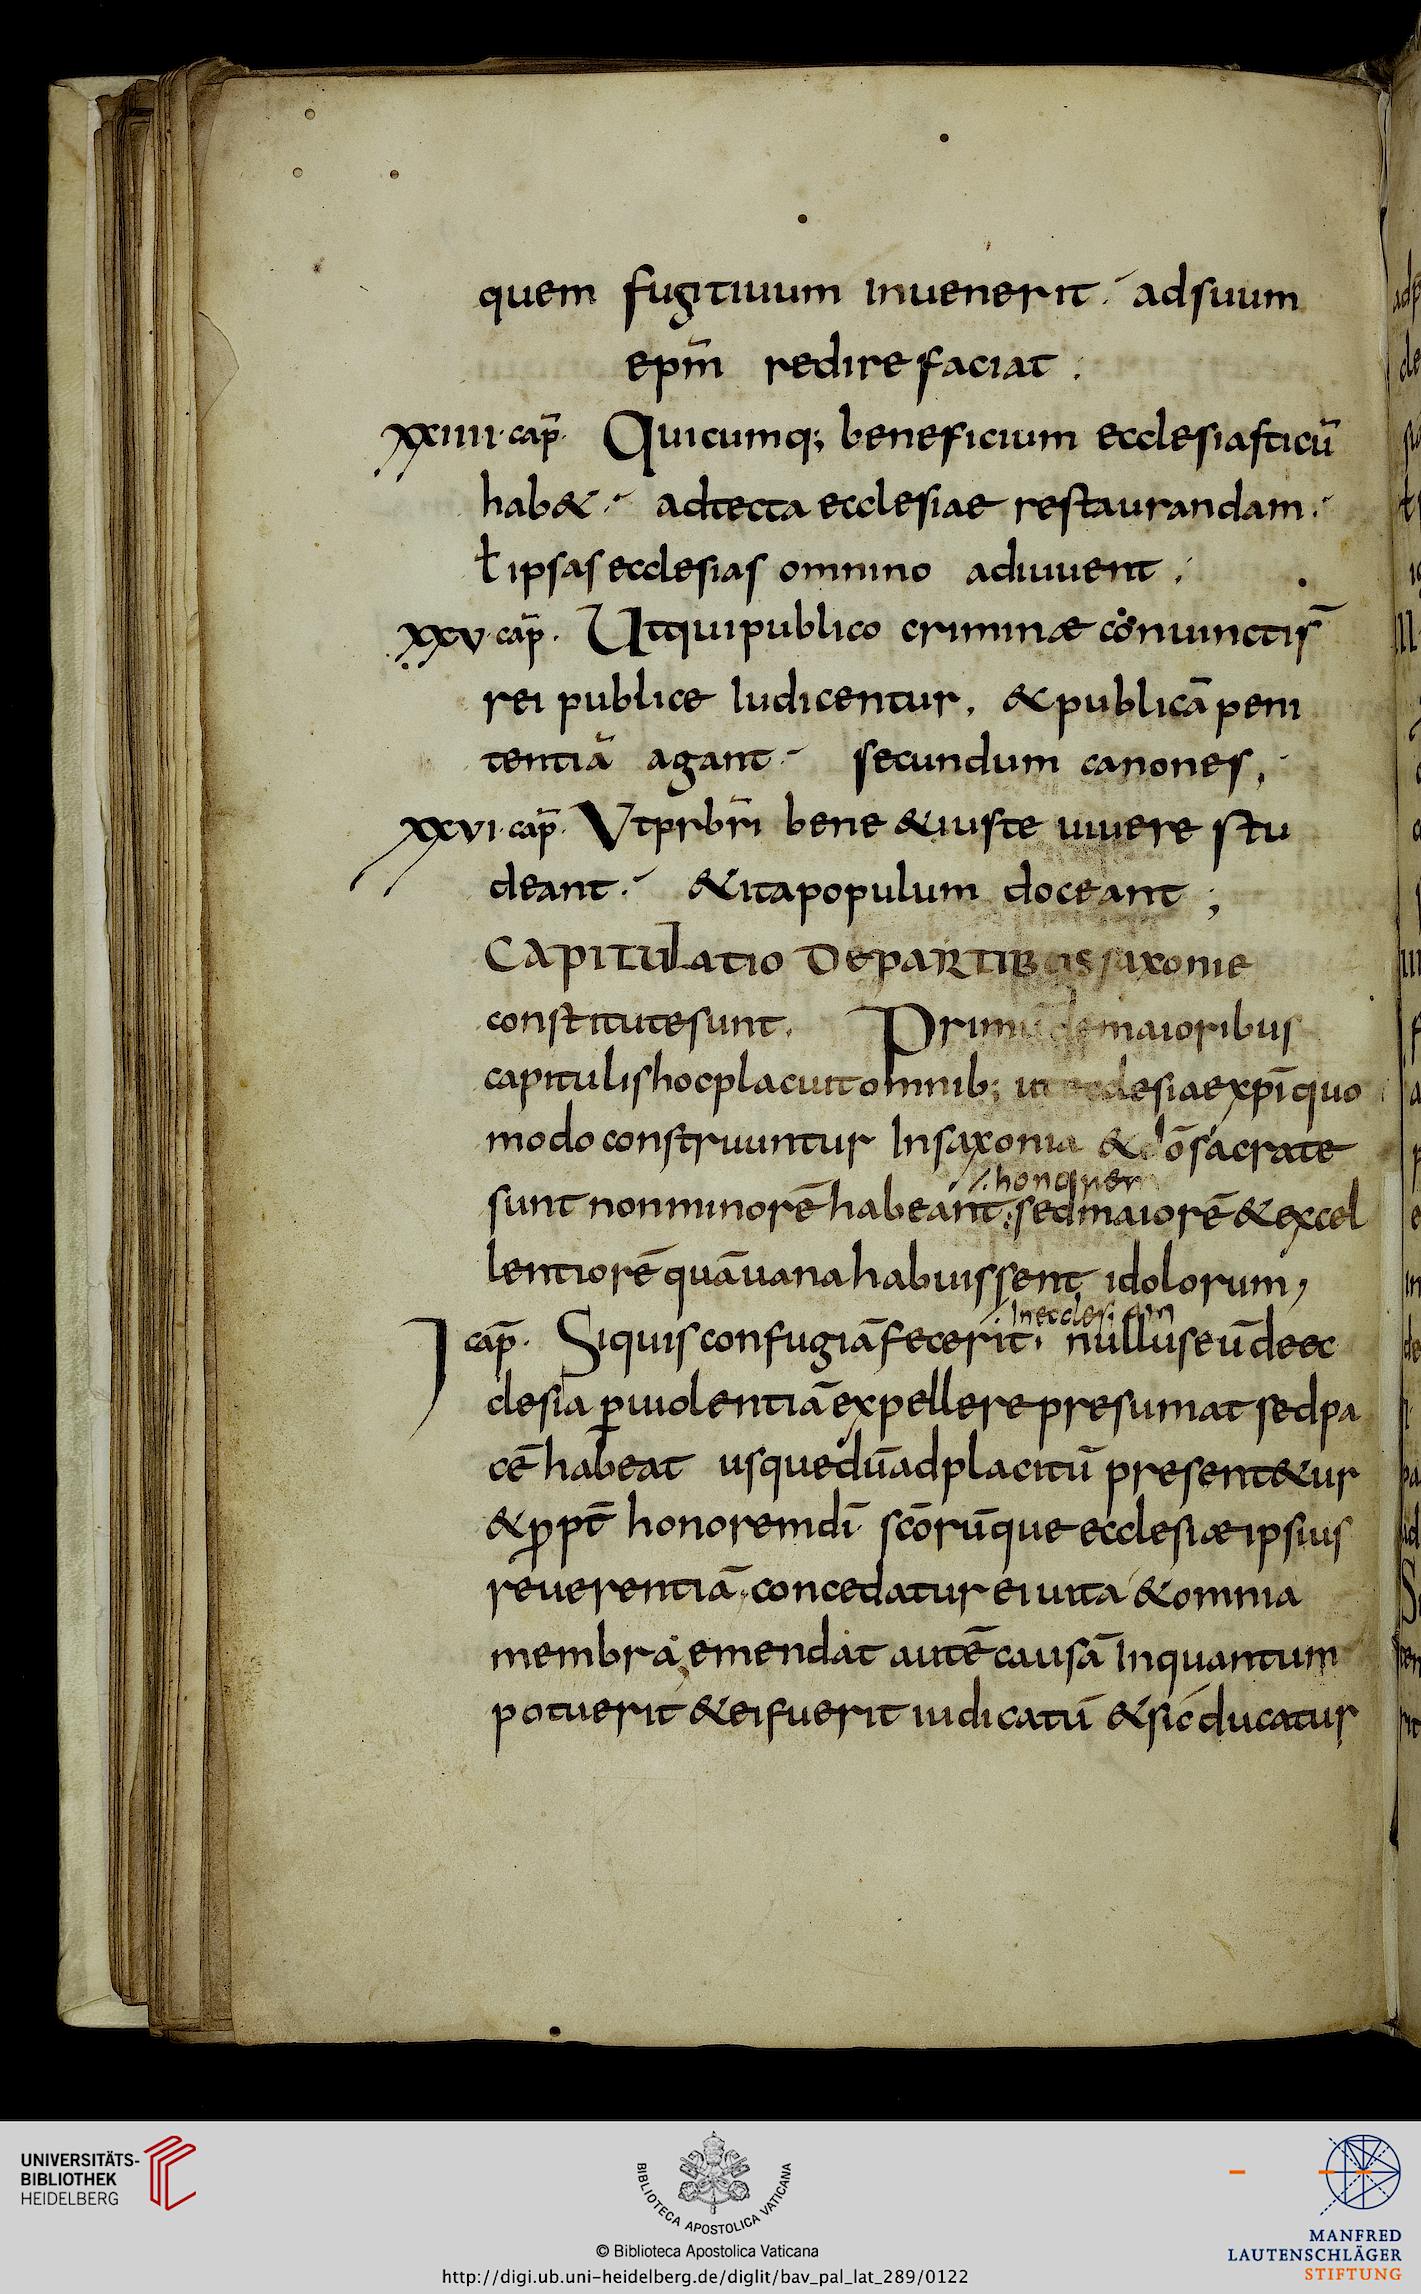 quem fugitiuum inuenerit. adsuum
epm̄ redire faciat.
xxiiii. cap̄. Quicumq; beneficium ecclesiasticū
hab&. adtecta ecclesiae restaurandam.
ł ipsas ecclesias omnino adiuuent.
xxv. cap̄. Utqui publico criminæ conuinctis
rei publice Iudicentur, & publicā peni
tentiā agant. secundum canones,
xxvi. cap̄. Vt prbr̄i bene & iuste uiuere stu
deant. & ita populum doceant;
CAPITULATIO DE PARTIBUS saxonie
constitute sunt. Primū de maioribus
capitulis hoc placuit omnib; ut ecclesiae xp̄i quo
modo construuntur In saxonia & cōsacrate
honorem
sunt non minorē habeant; sed maiorē & excel
lentiorē quā uana habuissent idolorum,
In ecclesiam
I cap̄. Si quis confugiā fecerit. nullus eū de ec
clesia p̱ uiolentiā expellere presumat sed pa
cē habeat usque dū ad placitū present&ur
& ꝓpt̄ honorem dī scōrūque ecclesiæ ipsius
reuerentiā concedatur ei uita & omnia
membra, emendat autē causā Inquantum
potuerit & ei fuerit iudicatū & sic ducatur
UNIVERSITÄTS-
BIBLIOTHEK
HEIDELBERG
BIBLIOTECA APOSTOLICA VATICANA
© Biblioteca Apostolica Vaticana
http://digi.ub.uni-heidelberg.de/diglit/bav_pal_lat_289/0122
MANFRED
LAUTENSCHLÄGER
STIFTUNG